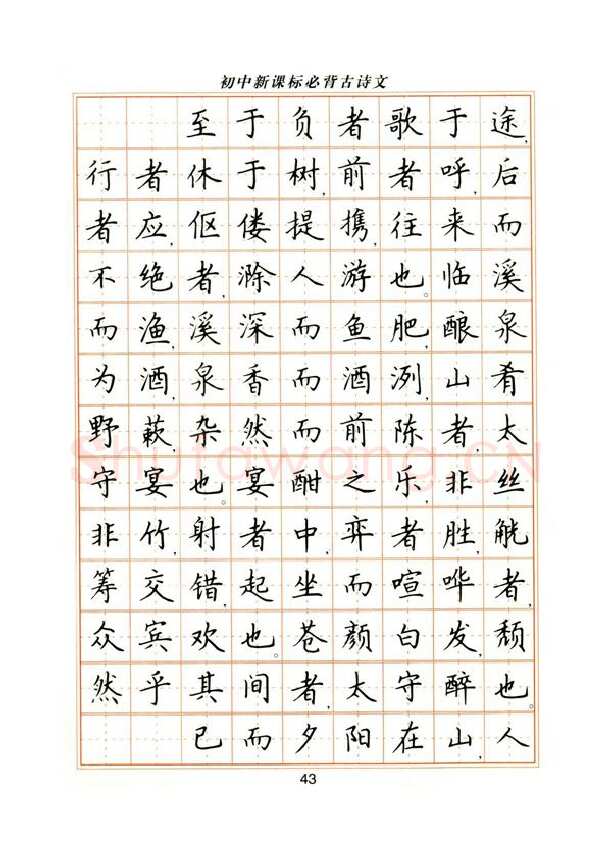 初中新课标必背古诗文
至于负者歌于途，
行者休于树，前者呼，后
者应，伛偻提携，往来而
不绝者，滁人游也。临溪
而渔，溪深而鱼肥，酿泉
为酒，泉香而酒洌，山肴
野蔌，杂然而前陈者，太
守宴也。宴酣之乐，非丝
非竹，射者中，弈者胜，觥
筹交错，起坐而喧哗者，
众宾欢也。苍颜白发，颓
然乎其间者，太守醉也。
已而夕阳在山，人
43
Shufawang.CN